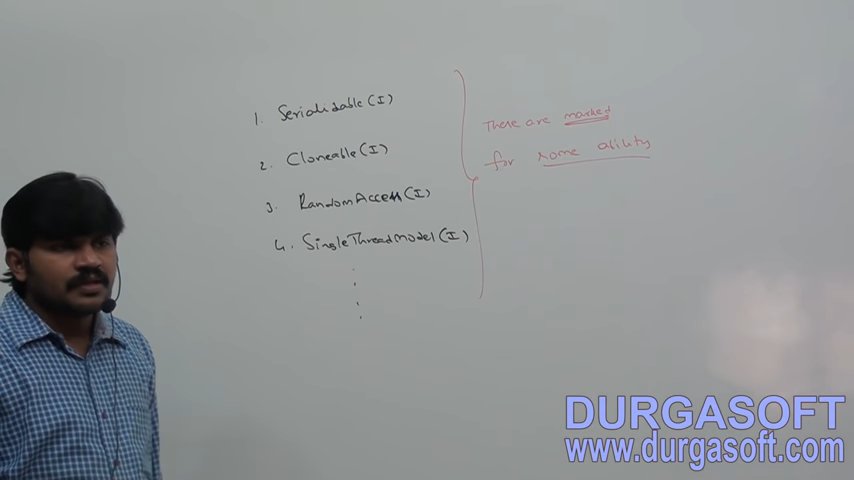 1. Serializable (I)
2. Cloneable (I)
3. RandomAccess (I)
4. SingleThreadModel (I)
These are marked
for some ability
DURGASOFT
www.durgasoft.com